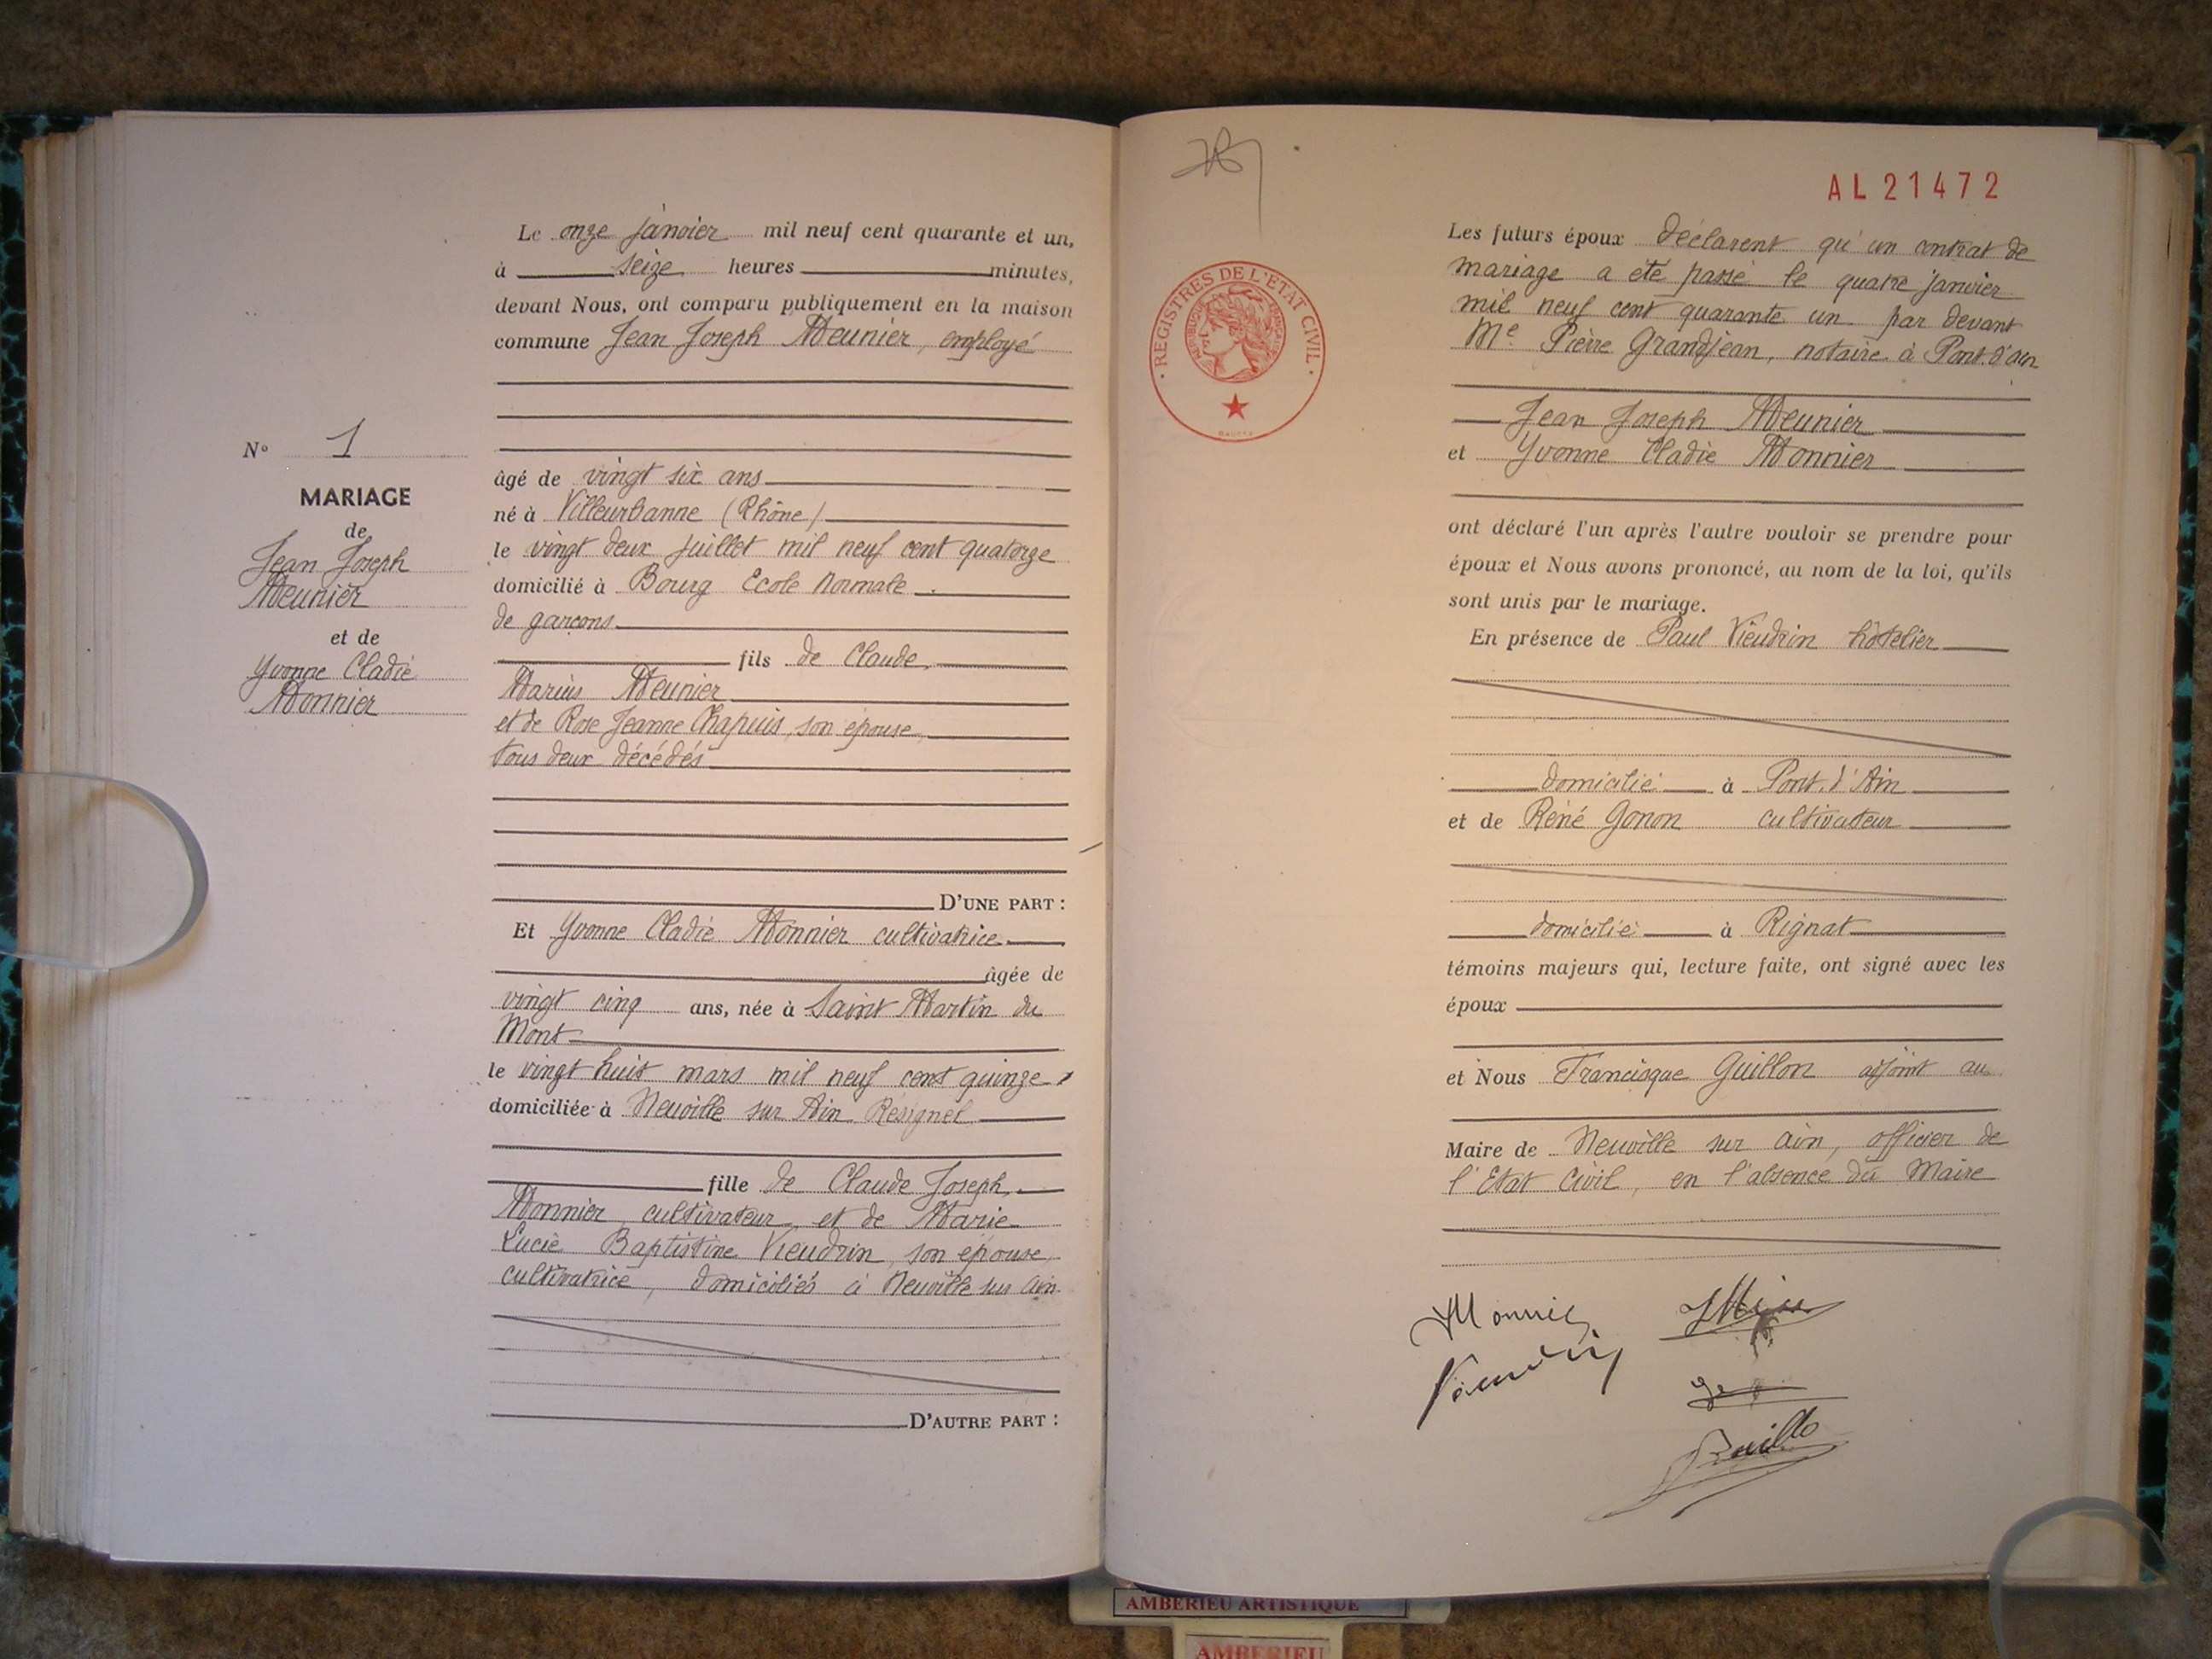 N° 1
MARIAGE
de
Jean Joseph
Meunier
et de
Yvonne Cladie
Monnier
Le onze janvier mil neuf cent quarante et un,
à seize heures minutes,
devant Nous, ont comparu publiquement en la maison
commune Jean Joseph Meunier, employé
âgé de vingt six ans
né à Villeurbanne (Rhône)
le vingt deux juillet mil neuf cent quatorze
domicilié à Bourg Ecole Normale
de garçons
fils de Claude,
Marius Meunier
et de Rose Jeanne Chapuis, son épouse,
tous deux décédés
D'UNE PART :
Et Yvonne Cladie Monnier cultivatrice
âgée de
vingt cinq ans, née à Saint Martin du
Mont
le vingt huit mars mil neuf cent quinze
domiciliée à Neuville sur Ain Résignel
fille de Claude Joseph
Monnier, cultivateur, et de Marie
Lucie Baptistine Vieudrin, son épouse,
cultivatrice, domiciliés à Neuville sur Ain
D'AUTRE PART :
AL21472
REGISTRES DE L'ÉTAT CIVIL
Les futurs époux déclarent qu'un contrat de
mariage a été passé le quatre janvier
mil neuf cent quarante un par devant
Me Pierre Grandjean, notaire à Pont d'ain
Jean Joseph Meunier
et Yvonne Cladie Monnier
ont déclaré l'un après l'autre vouloir se prendre pour
époux et Nous avons prononcé, au nom de la loi, qu'ils
sont unis par le mariage.
En présence de Paul Vieudrin hôtelier
domicilié à Pont d'Ain
et de Réné Gonon cultivateur
domicilié à Rignat
témoins majeurs qui, lecture faite, ont signé avec les
époux
et Nous Francisque Guillon adjoint au
Maire de Neuville sur ain, officier de
l'Etat Civil, en l'absence du Maire
Monnier
Vieudrin
AMBERIEU ARTISTIQUE
AMBERIEU